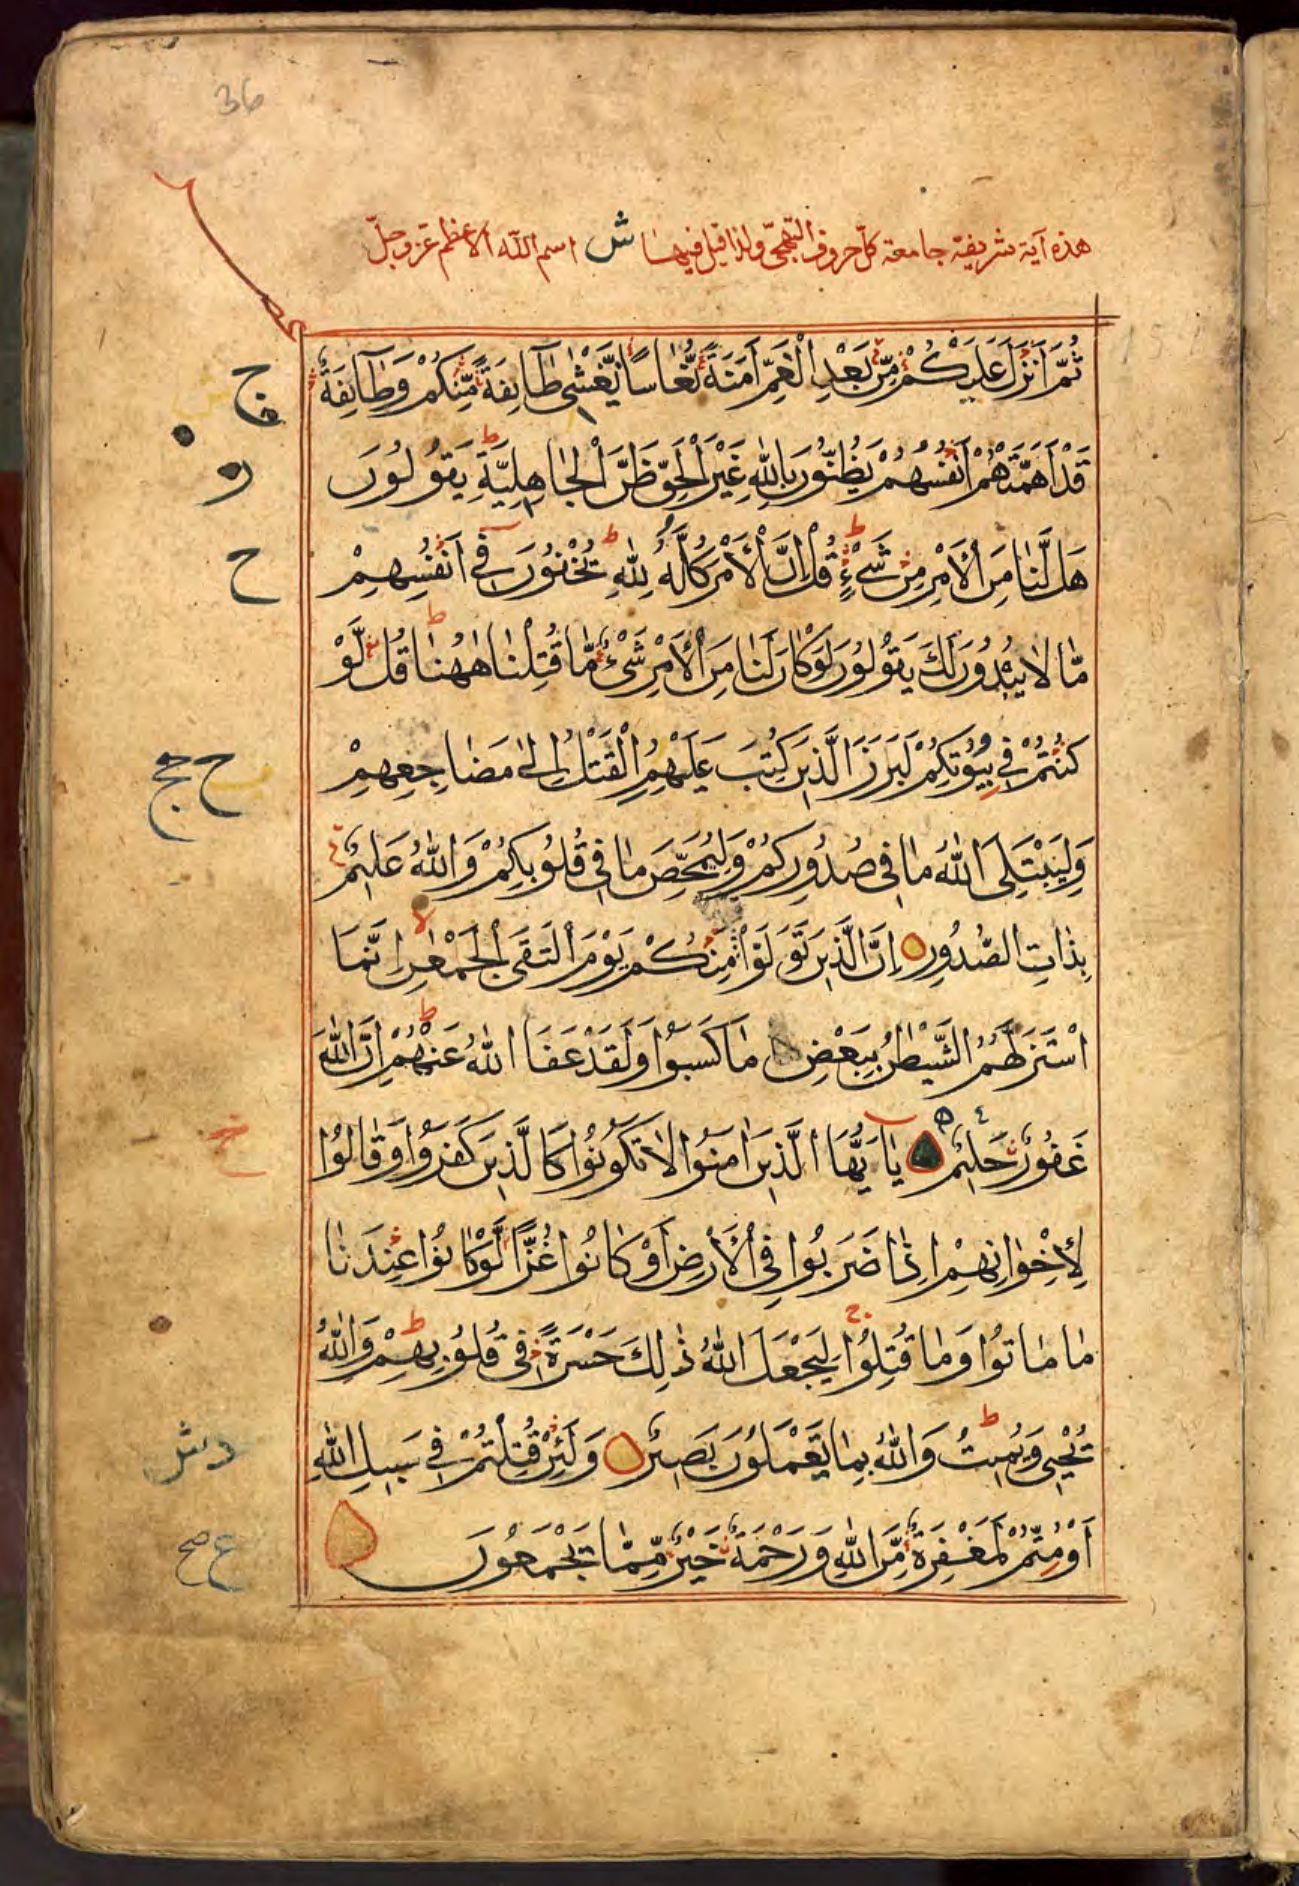 36
هذه آية شريفة جامعة كل حروف التهجّي ولذا قيل فيها ش اسم الله الاعظم عزّ وجلّ
ثُمَّ أَنْزَلَ عَلَيْكُمْ مِّنْ بَعْدِ الْغَمِّ أَمَنَةً نُّعَاسًا يَّغْشٰى طَآئِفَةً مِّنْكُمْ وَطَآئِفَةٌ
ج
قَدْ أَهَمَّتْهُمْ أَنْفُسُهُمْ يَظُنُّونَ بِاللّٰهِ غَيْرَ الْحَقِّ ظَنَّ الْجَاهِلِيَّةِ ط يَقُولُونَ
و
هَلْ لَّنَا مِنَ الْأَمْرِ مِنْ شَيْءٍ ط قُلْ إِنَّ الْأَمْرَ كُلَّهُ لِلّٰهِ ط يُخْفُونَ فِي أَنْفُسِهِمْ
ح
مَّا لَا يُبْدُونَ لَكَ يَقُولُونَ لَوْ كَانَ لَنَا مِنَ الْأَمْرِ شَيْءٌ مَّا قُتِلْنَا هٰهُنَا ط قُلْ لَّوْ
كُنْتُمْ فِي بُيُوتِكُمْ لَبَرَزَ الَّذِينَ كُتِبَ عَلَيْهِمُ الْقَتْلُ إِلٰى مَضَاجِعِهِمْ
ح حج
وَلِيَبْتَلِيَ اللّٰهُ مَا فِي صُدُورِكُمْ وَلِيُمَحِّصَ مَا فِي قُلُوبِكُمْ وَاللّٰهُ عَلِيمٌ
بِذَاتِ الصُّدُورِ إِنَّ الَّذِينَ تَوَلَّوْا مِنْكُمْ يَوْمَ الْتَقَى الْجَمْعٰنِ لا إِنَّمَا
اسْتَزَلَّهُمُ الشَّيْطٰنُ بِبَعْضِ مَا كَسَبُوا وَلَقَدْ عَفَا اللّٰهُ عَنْهُمْ ط إِنَّ اللّٰهَ
غَفُورٌ حَلِيمٌ يَآ أَيُّهَا الَّذِينَ اٰمَنُوا لَا تَكُونُوا كَالَّذِينَ كَفَرُوا وَقَالُوا
خ
لِإِخْوَانِهِمْ إِذَا ضَرَبُوا فِي الْأَرْضِ أَوْ كَانُوا غُزًّا لَّوْ كَانُوا عِنْدَنَا
مَا مَاتُوا وَمَا قُتِلُوا ج لِيَجْعَلَ اللّٰهُ ذٰلِكَ حَسْرَةً فِي قُلُوبِهِمْ ط وَاللّٰهُ
يُحْيِي وَيُمِيتُ ط وَاللّٰهُ بِمَا تَعْمَلُونَ بَصِيرٌ وَلَئِنْ قُتِلْتُمْ فِي سَبِيلِ اللّٰهِ
أَوْ مُتُّمْ لَمَغْفِرَةٌ مِّنَ اللّٰهِ وَرَحْمَةٌ خَيْرٌ مِّمَّا يَجْمَعُونَ
ع صح